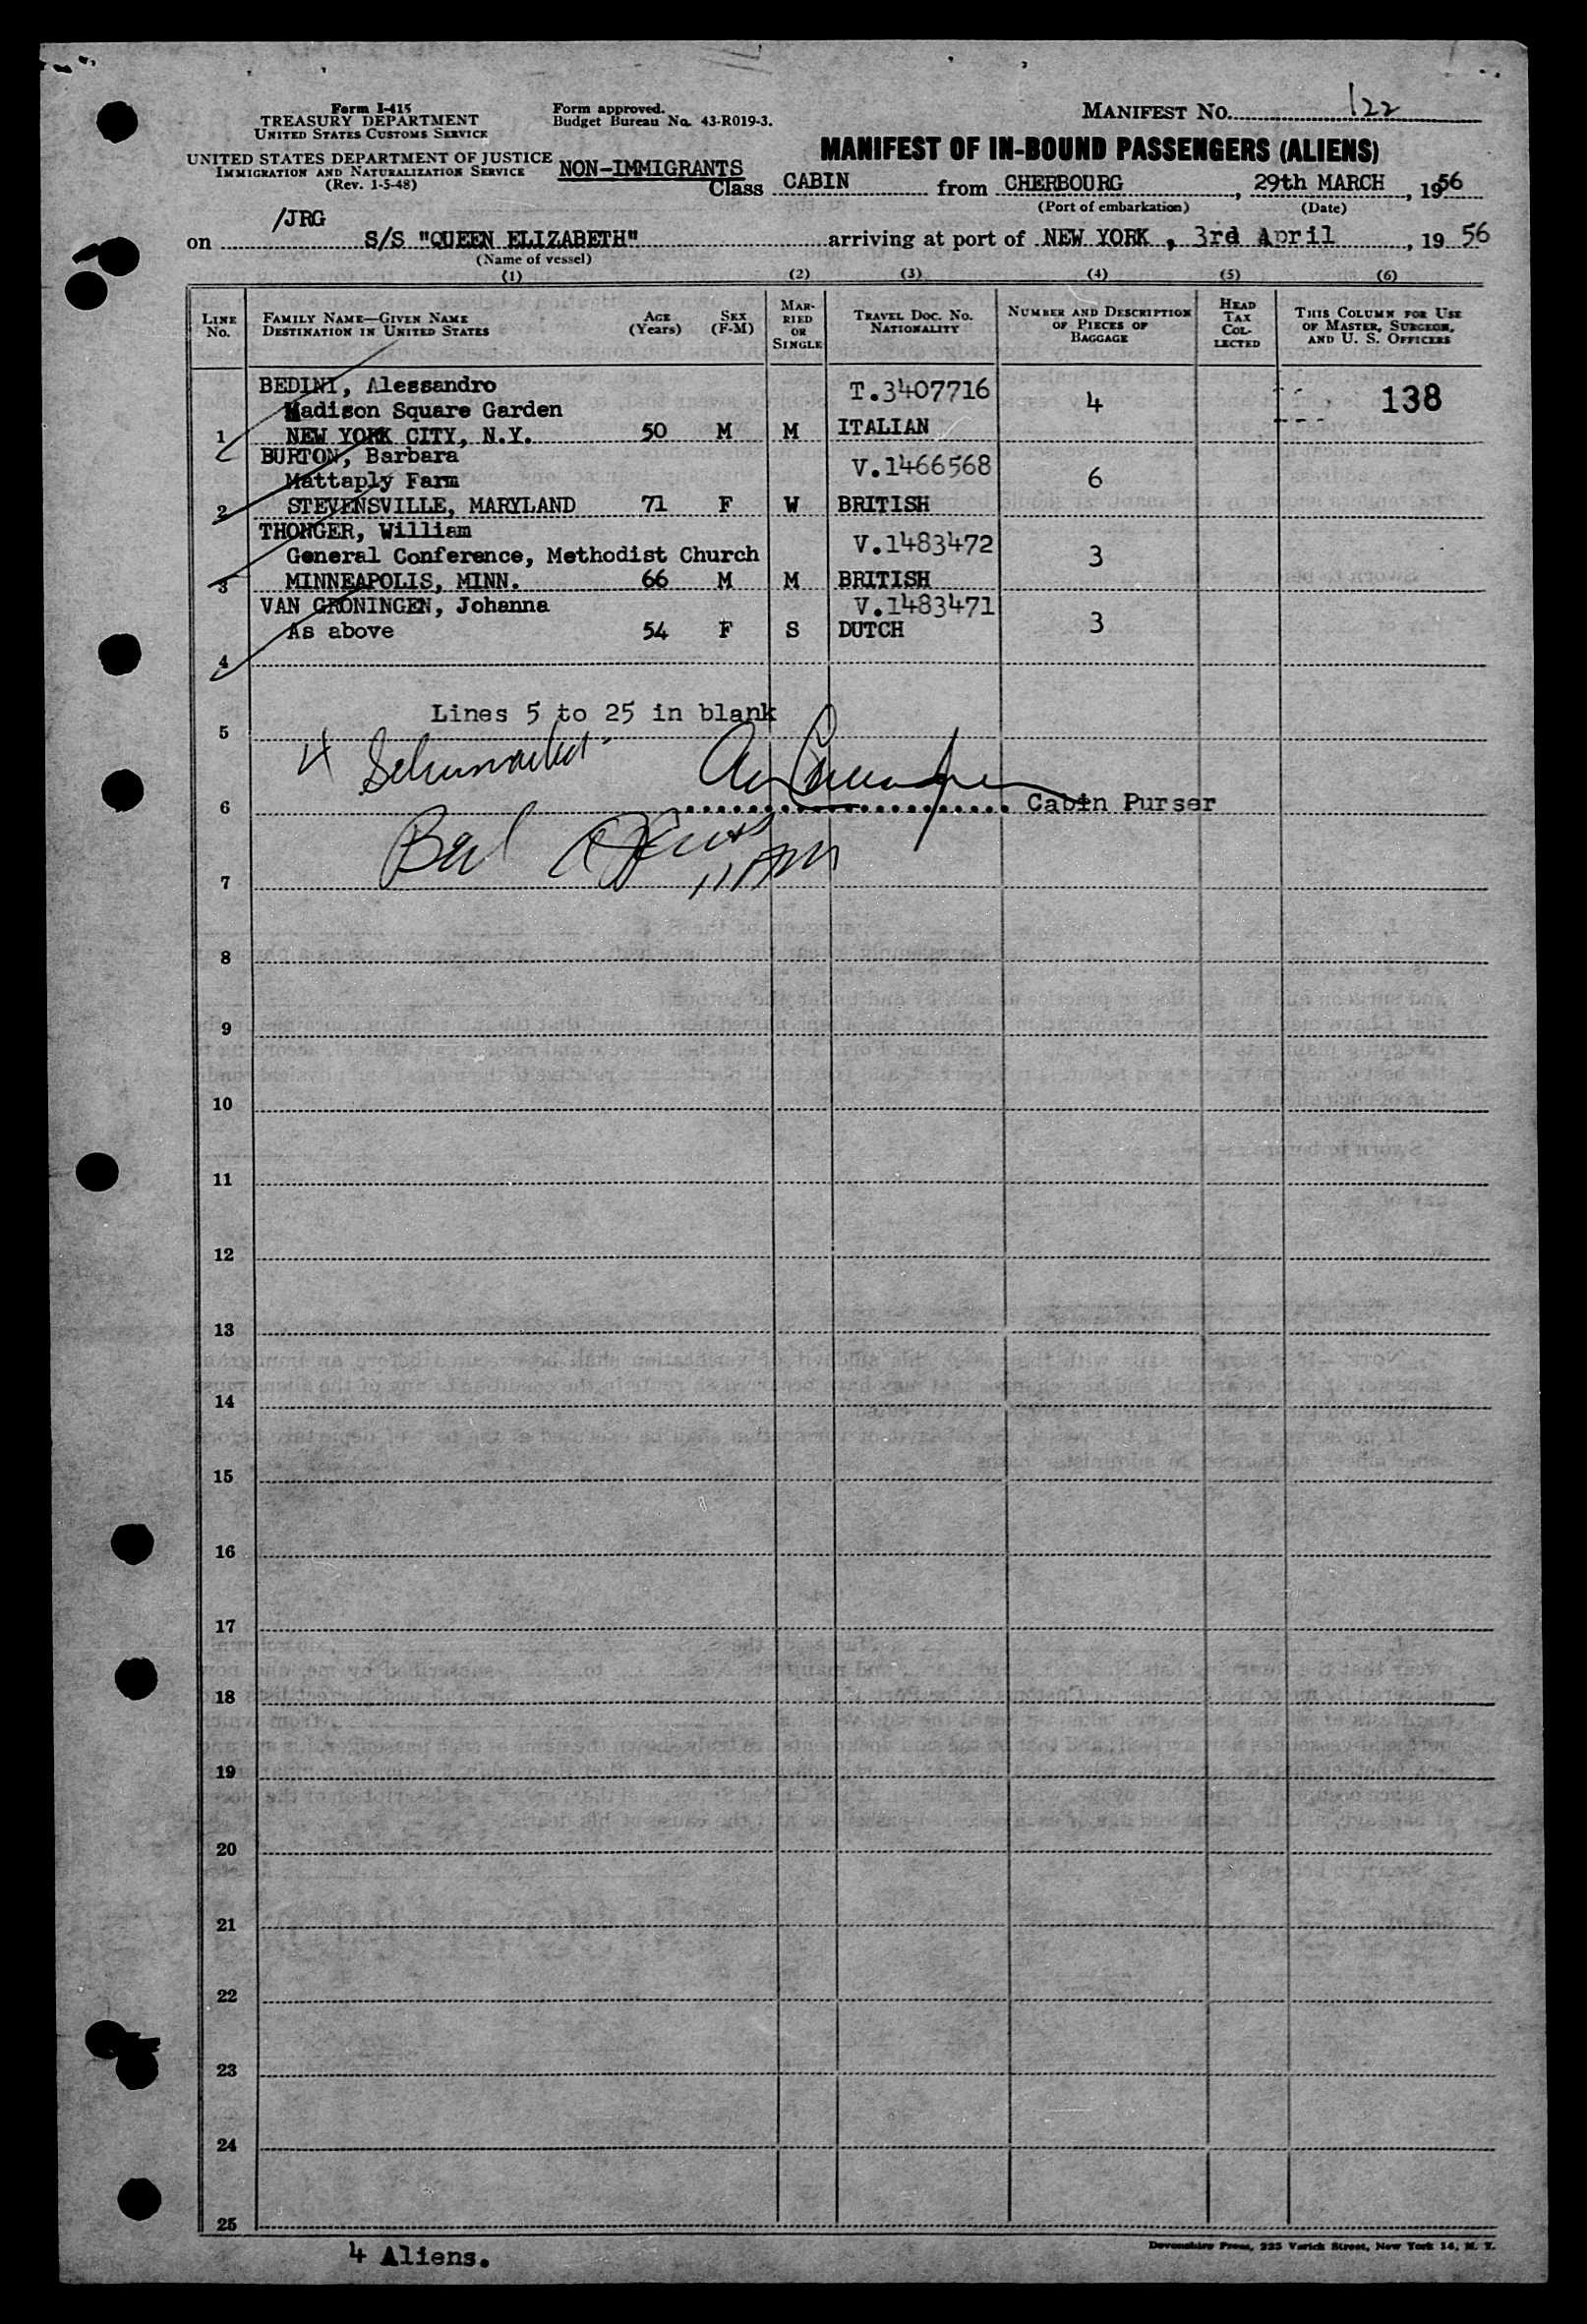 Form I-415
TREASURY DEPARTMENT
UNITED STATES CUSTOMS SERVICE
UNITED STATES DEPARTMENT OF JUSTICE
IMMIGRATION AND NATURALIZATION SERVICE
(Rev. 1-5-48)
Form approved.
Budget Bureau No. 43-R019-3.
MANIFEST NO. 122
MANIFEST OF IN-BOUND PASSENGERS (ALIENS)
NON-IMMIGRANTS
Class CABIN from CHERBOURG, 29th MARCH, 1956
(Port of embarkation) (Date)
/JRG
on S/S "QUEEN ELIZABETH" arriving at port of NEW YORK, 3rd April, 1956
(Name of vessel)
(1) (2) (3) (4) (5) (6)
LINE NO.
FAMILY NAME—GIVEN NAME
DESTINATION IN UNITED STATES
AGE (Years)
SEX (F-M)
MARRIED OR SINGLE
TRAVEL DOC. NO.
NATIONALITY
NUMBER AND DESCRIPTION OF PIECES OF BAGGAGE
HEAD TAX COLLECTED
THIS COLUMN FOR USE OF MASTER, SURGEON, AND U. S. OFFICERS
BEDINI, Alessandro T.3407716 4 138
Madison Square Garden
1 NEW YORK CITY, N.Y. 50 M M ITALIAN
BURTON, Barbara V.1466568 6
Mattaply Farm
2 STEVENSVILLE, MARYLAND 71 F W BRITISH
THONGER, William V.1483472 3
General Conference, Methodist Church
3 MINNEAPOLIS, MINN. 66 M M BRITISH
VAN GRONINGEN, Johanna V.1483471 3
As above 54 F S DUTCH
4
Lines 5 to 25 in blank
5
6 Cabin Purser
7
8
9
10
11
12
13
14
15
16
17
18
19
20
21
22
23
24
25
4 Aliens.
Devonshire Press, 225 Varick Street, New York 14, N. Y.